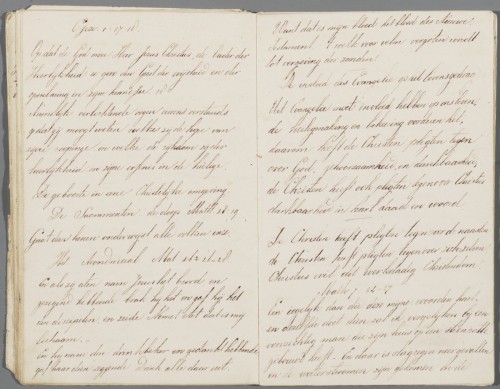 Efeze 1. 17. 18.
Opdat de God onzes Heeren Jezus Christus, de Vader der
heerlijkheid u geve den Geest der wijsheid en der
openbaring in zijne kennisse. 18
namelijk verlichtende oogen uwes verstands
opdat gij moogt weten welke zij de hope van
zijne roepinge en welke de rijkdom zij der
heerlijkheid van zijne erfenis in de heilige
De geboorte in eene Christelijke omgeving
De Sacramenten. de doop Matth. 28. 19.
Gaat dan henen onderwijst alle volken enz.
Het Avondmaal Mat 26: 26-28
En als zij aten nam Jezus het brood en
gezegend hebbende brak hij het en gaf hij het
den discipelen, en zeide Neemt eet dat is mijn
lichaam.
En hij nam den drinkbeker en gedankt hebbende
gaf haar dien zeggende Drinkt alle daar uit
Want dat is mijn bloed het bloed des Nieuwe
Testament, 't welk voor velen vergoten wordt
tot vergeving der zonden.
De invloed des Evangelies op
Het Evangelie moet invloed hebben op ons
de heiligmaking en bekeering
daarom heeft de Christen pligten tegen
over God, gehoorzaamheid, en dankbaarheid,
de Christen heeft ook pligten tegenover Christus
dankbaarheid in hart daad en woord
De Christen heeft pligten tegenover de naasten
De Christen heeft pligten tegenover zichzelven
Christus
Matth. 7 24-27
Een iegelijk dan die deze mijne woorden hoort
en dezelve doet dien zal ik vergelijken bij een
voorzichtig man die zijn huis op een steenrots
gebouwd heeft. En daar is slagregen neder gevallen
en de waterstroomen zijn gekomen en de